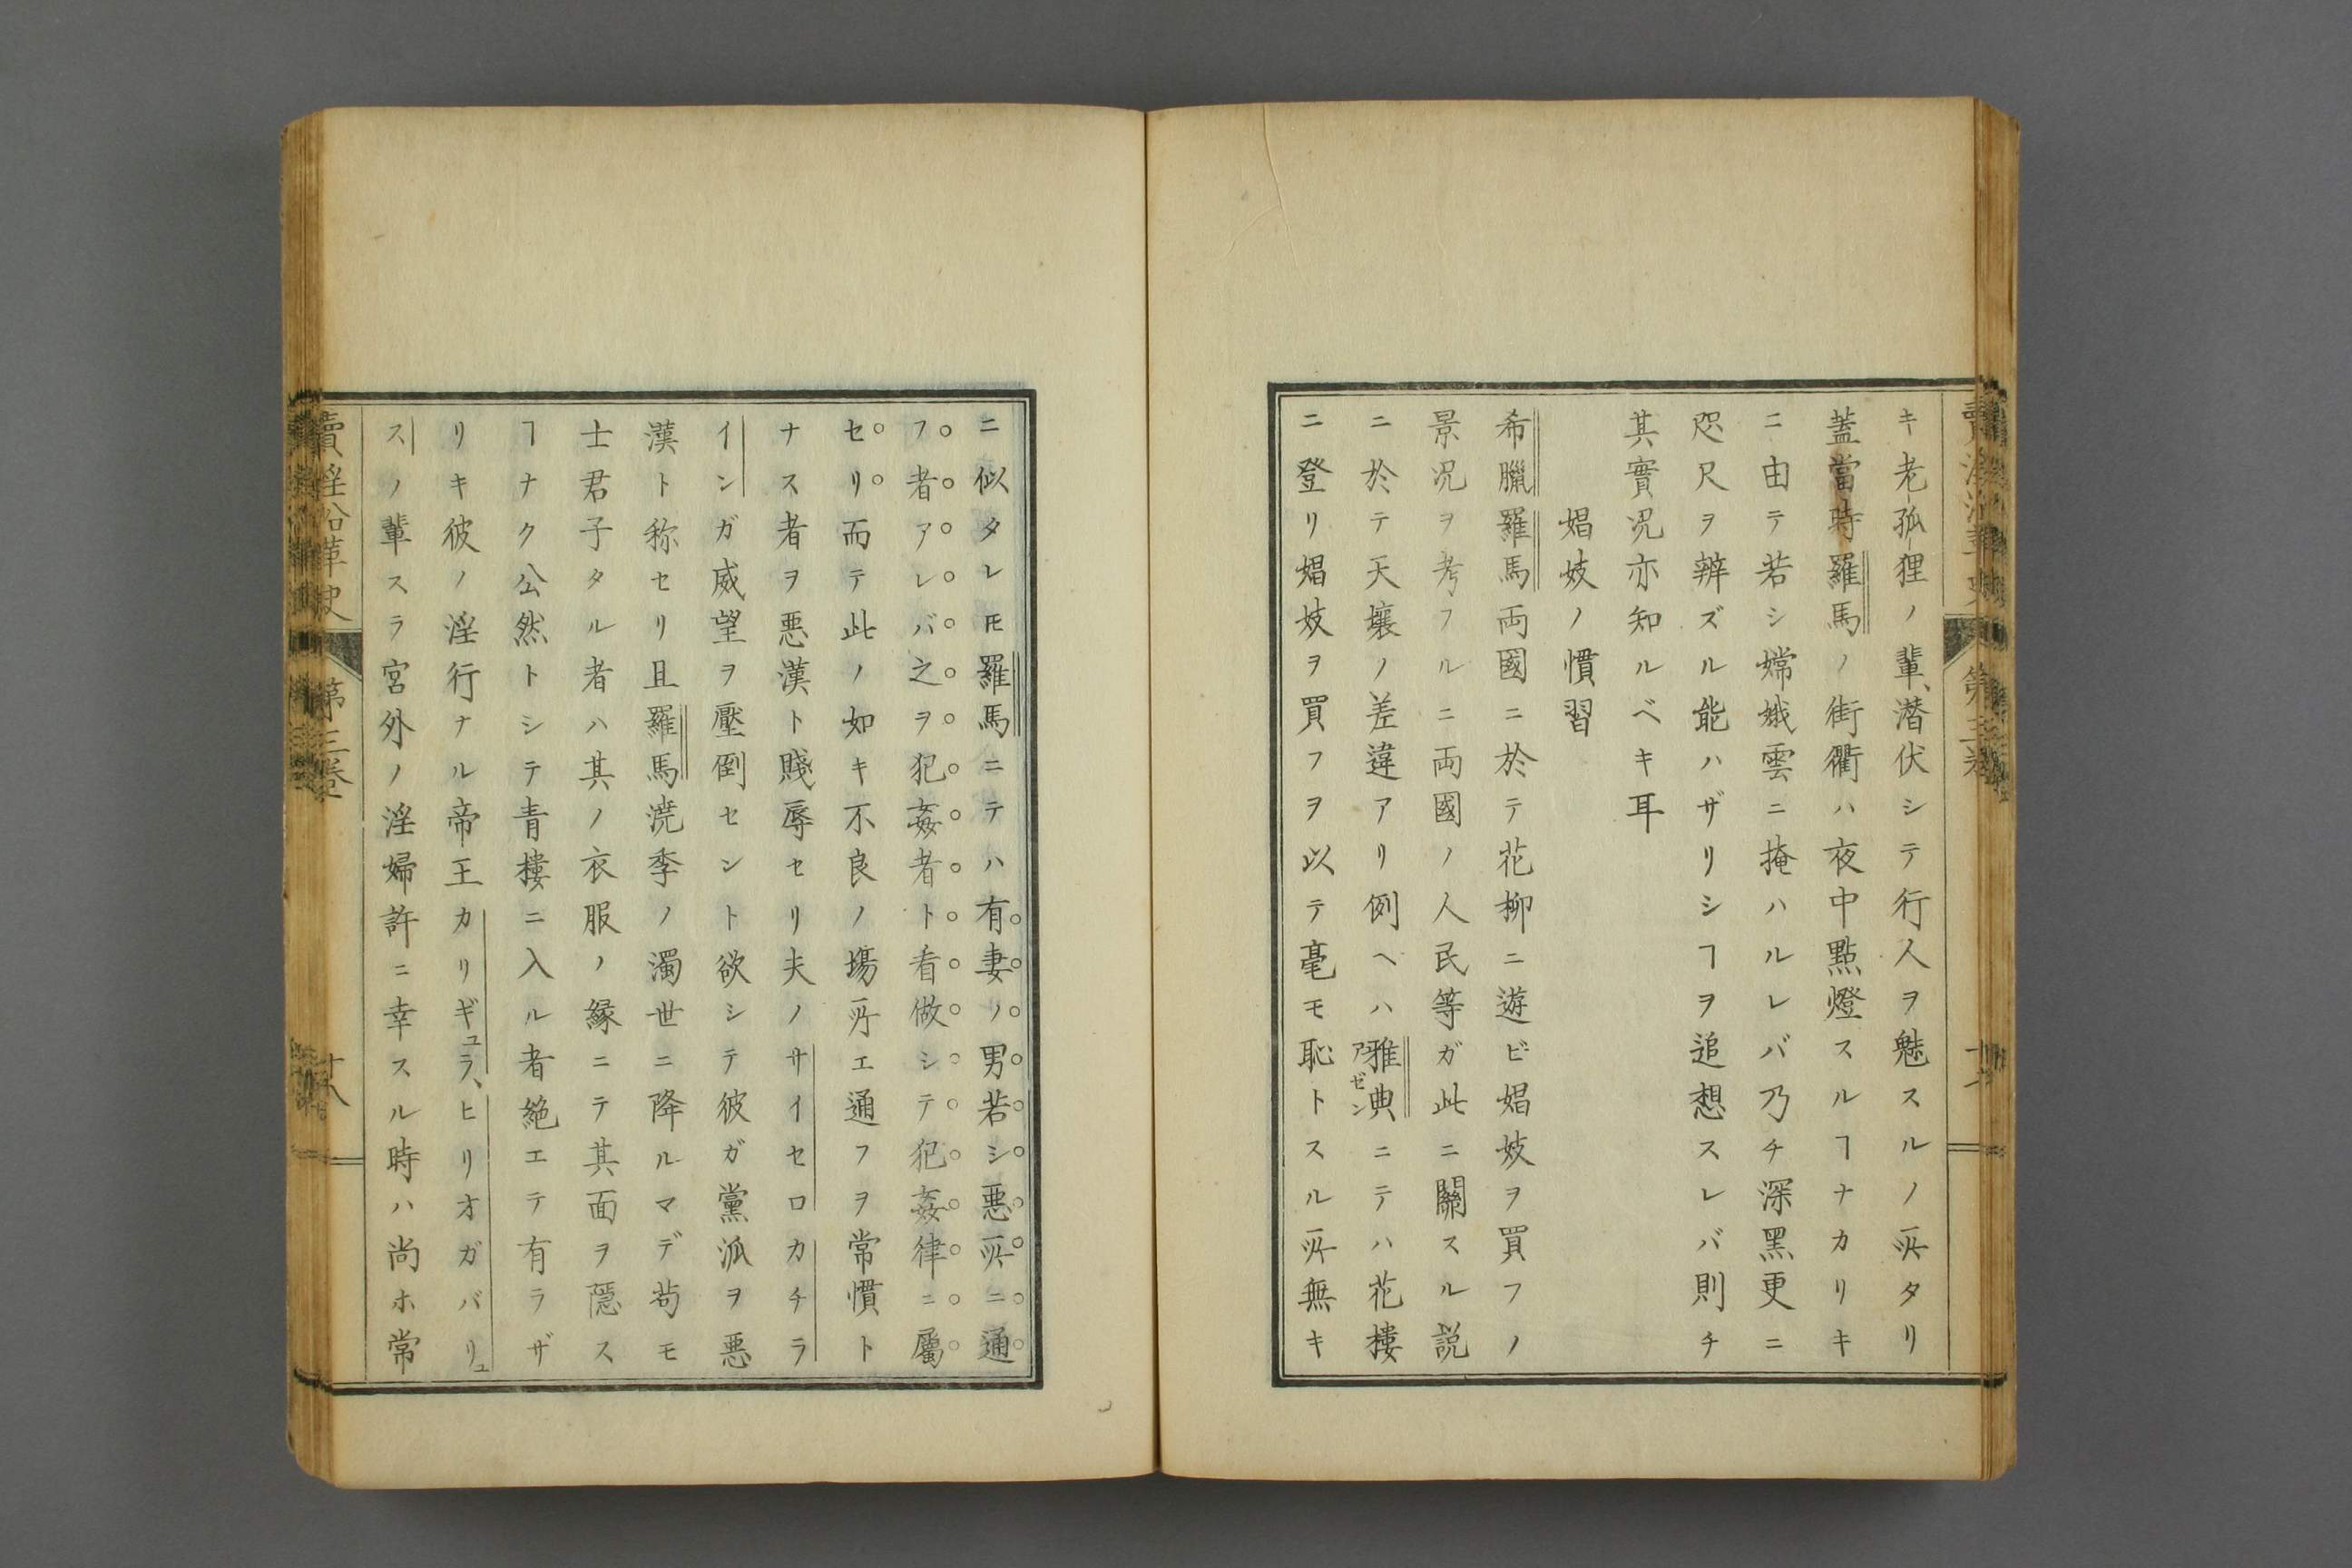 キ老孤狸ノ輩、潜伏シテ行人ヲ魅スルノ所タリ
蓋當時羅馬ノ街衢ハ夜中點燈スルヿナカリキ
ニ由テ若シ嫦娥雲ニ掩ハルレバ乃チ深黑更ニ
咫尺ヲ辨ズル能ハザリシヿヲ追想スレバ則チ
其實況亦知ルベキ耳
娼妓ノ慣習
希臘羅馬両國ニ於テ花柳ニ遊ビ娼妓ヲ買フノ
景况ヲ考フルニ両國ノ人民等ガ此ニ關スル説
ニ於テ天壤ノ差違アリ例ヘハ雅典アゼンニテハ花樓
ニ登リ娼妓ヲ買フヲ以テ毫モ恥トスル所無キ
ニ似タレㇳモ羅馬ニテハ有妻ノ男若シ悪所ニ通
フ者アレバ之ヲ犯姦者ト看做シテ犯姦律ニ屬
セリ而テ此ノ如キ不良ノ塲所エ通フヲ常慣ト
ナス者ヲ悪漢ト賤辱セリ夫ノサイセロカチラ
インガ威望ヲ壓倒セント欲シテ彼ガ黨派ヲ悪
漢ト称セリ且羅馬澆季ノ濁世ニ降ルマデ苟モ
士君子タル者ハ其ノ衣服ノ縁ニテ其面ヲ隠ス
ヿナク公然トシテ青樓ニ入ル者絶エテ有ラザ
リキ彼ノ淫行ナル帝王カリギュラ、ヒリオガバリュ
スノ輩スラ宮外ノ淫婦許ニ幸スル時ハ尚ホ常
賣淫沿革史
第三卷
十八